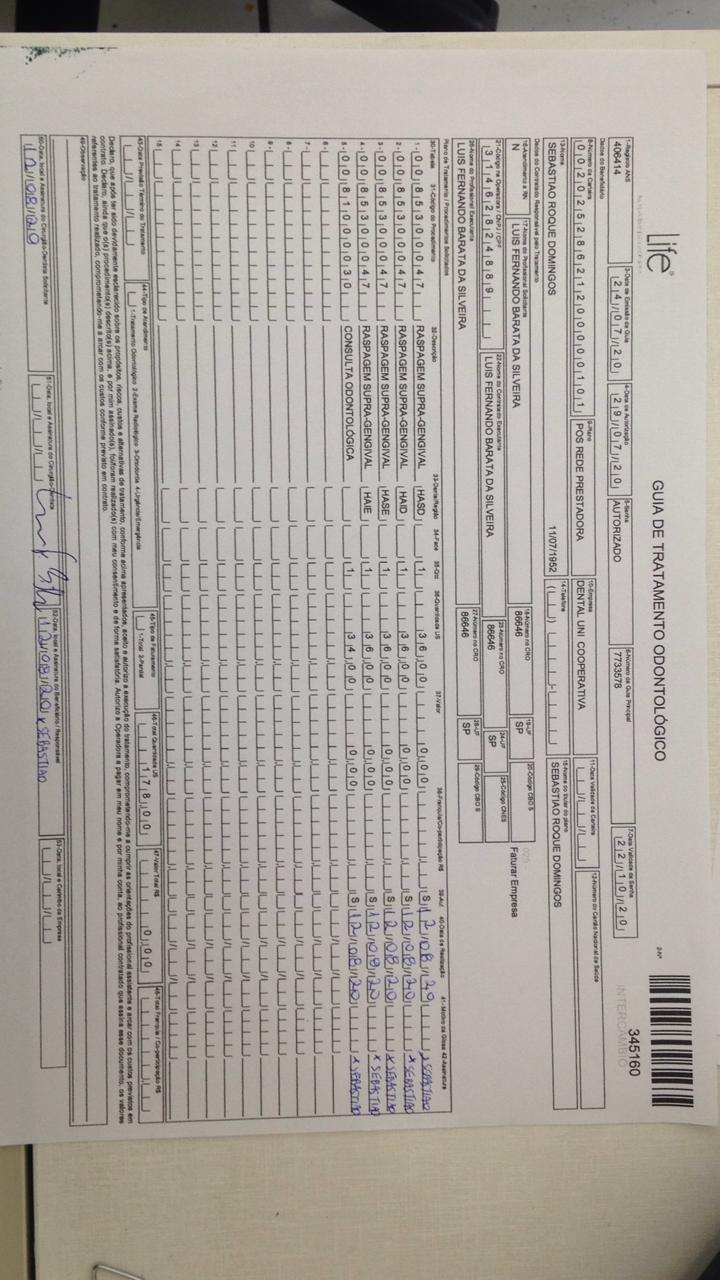 Life®
GUIA DE TRATAMENTO ODONTOLÓGICO
2-Nº
345160
INTERCÂMBIO
1-Registro ANS
406414
3-Data de Emissão da Guia
24/07/20
4-Data de Autorização
29/07/20
5-Senha
AUTORIZADO
6-Número da Guia Principal
7733578
7-Data Validade da Senha
22/10/20
Dados do Beneficiário
8-Número da Carteira
00202528621200000101
9-Plano
POS REDE PRESTADORA
10-Empresa
DENTAL UNI COOPERATIVA
11-Data Validade da Carteira
12-Número do Cartão Nacional de Saúde
13-Nome
SEBASTIAO ROQUE DOMINGOS
11/07/1952
14-Telefone
15-Nome do titular do plano
SEBASTIAO ROQUE DOMINGOS
Dados do Contratado Responsável pelo Tratamento
16-Atendimento a RN
N
17-Nome do Profissional Solicitante
LUIS FERNANDO BARATA DA SILVEIRA
18-Número no CRO
86646
19-UF
SP
20-Código CBO S
025
Faturar Empresa
21-Código na Operadora / CNPJ / CPF
31462824889
22-Nome do Contratado Executante
LUIS FERNANDO BARATA DA SILVEIRA
23-Número no CRO
86646
24-UF
SP
25-Código CNES
26-Nome do Profissional Executante
LUIS FERNANDO BARATA DA SILVEIRA
27-Número no CRO
86646
28-UF
SP
29-Código CBO S
Plano de Tratamento / Procedimentos Solicitados
30-Tabela 31-Código do Procedimento 32-Descrição 33-Dente/Região 34-Face 35-Qtd 36-Quantidade US 37-Valor 38-Franquia/Co-participação R$ 39-Aut 40-Data de Realização 41-Motivo da Glosa 42-Assinatura
1- 0085300047 RASPAGEM SUPRA-GENGIVAL HASD 1 36,00 0,00 S 12/08/20 x SEBASTIAO
2- 0085300047 RASPAGEM SUPRA-GENGIVAL HAID 1 36,00 0,00 S 12/08/20 x SEBASTIAO
3- 0085300047 RASPAGEM SUPRA-GENGIVAL HASE 1 36,00 0,00 S 12/08/20 x SEBASTIAO
4- 0085300047 RASPAGEM SUPRA-GENGIVAL HAIE 1 36,00 0,00 S 12/08/20 x SEBASTIAO
5- 0081000030 CONSULTA ODONTOLÓGICA 1 34,00 0,00 S 12/08/20 x SEBASTIAO
6-
7-
8-
9-
10-
11-
12-
13-
14-
15-
43-Data Prevista Término do Tratamento
44-Tipo de Atendimento
1-Tratamento Odontológico 2-Exame Radiológico 3-Ortodontia 4-Urgência/Emergência
45-Tipo de Faturamento
1-Total 2-Parcial
46-Total Quantidade US
178,00
47-Valor Total R$
0,00
48-Total Franquia / Co-participação R$
Declaro, que após ter sido devidamente esclarecido sobre os propósitos, riscos, custos e alternativas de tratamento, conforme acima apresentados, aceito e autorizo a execução do tratamento, comprometendo-me a cumprir as orientações do profissional assistente e arcar com os custos previstos em
contrato. Declaro, ainda que o(s) procedimento(s) descrito(s) acima, e por mim assinado(s), foi/foram realizado(s) com meu consentimento e de forma satisfatória. Autorizo a Operadora a pagar em meu nome e por minha conta, ao profissional contratado que assina esse documento, os valores
referentes ao tratamento realizado, comprometendo-me a arcar com os custos conforme previsto em contrato.
49-Observação
50-Data, local e Assinatura do Cirurgião-Dentista Solicitante
12/08/20
51-Data, local e Assinatura do Cirurgião-Dentista
52-Data, local e Assinatura do Beneficiário / Responsável
12/08/20 x SEBASTIAO
53-Data, local e Carimbo da Empresa